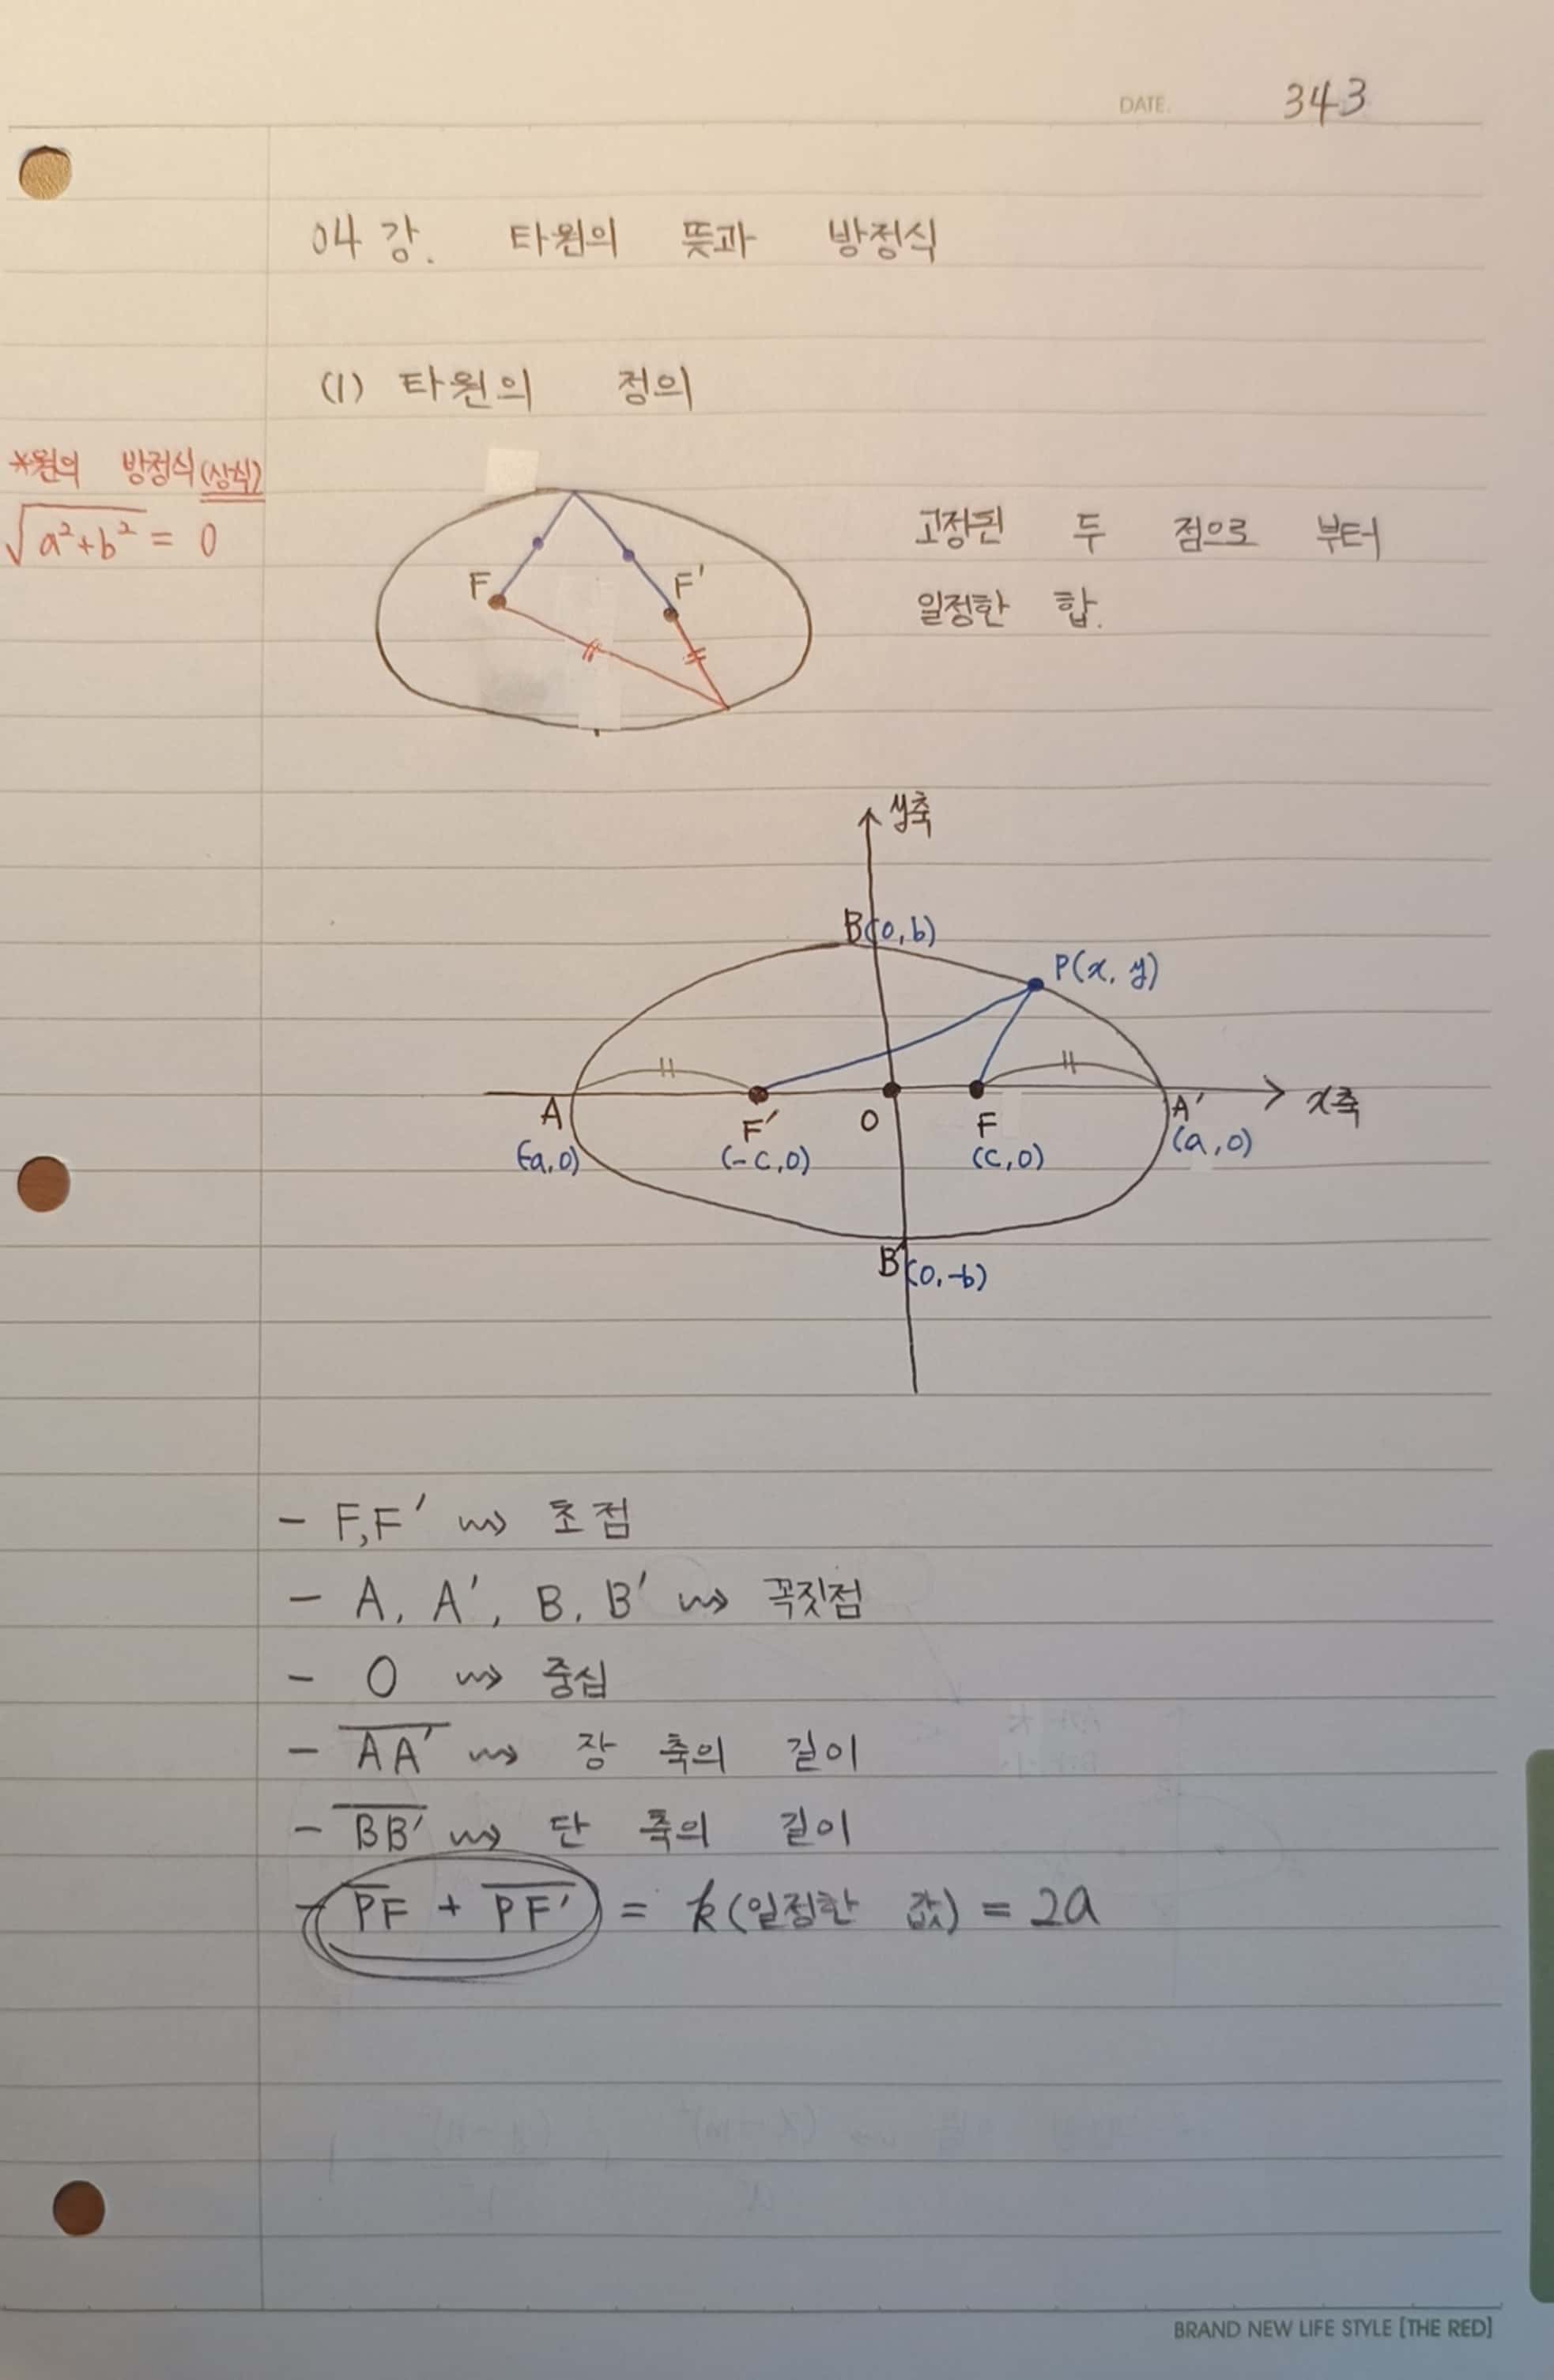 DATE. 343
04강. 타원의 뜻과 방정식
(1) 타원의 정의
*원의 방정식(상식)
√a²+b² = 0
F F'
고정된 두 점으로 부터
일정한 합.
y축
B(0,b)
P(x, y)
A F' O F A' x축
(-a,0) (-c,0) (c,0) (a,0)
B'(0,-b)
- F,F' ⇝ 초점
- A, A', B, B' ⇝ 꼭짓점
- O ⇝ 중심
- A̅A̅'̅ ⇝ 장 축의 길이
- B̅B̅'̅ ⇝ 단 축의 길이
- P̅F̅ + P̅F̅'̅ = k(일정한 값) = 2a
BRAND NEW LIFE STYLE [THE RED]